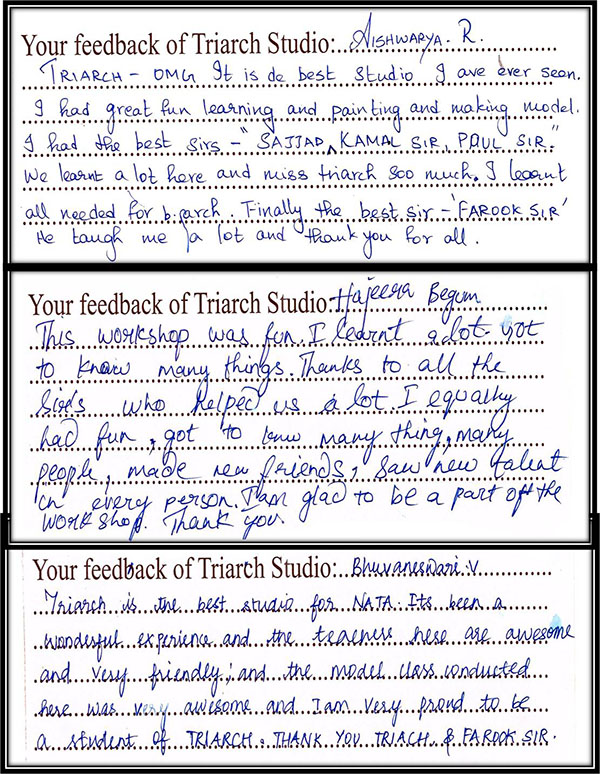 Your feedback of Triarch Studio: AISHWARYA. R.
TRIARCH - OMG It is de best studio I ave ever seen.
I had great fun learning and painting and making model.
I had the best sirs - "SAJJAD, KAMAL SIR, PAUL SIR."
We learnt a lot here and miss triarch soo much. I learnt
all needed for b.arch. Finally the best sir - 'FAROOK SIR'
He taugh me a lot and thank you for all.
Your feedback of Triarch Studio: Hajeera Begum
This workshop was fun. I learnt a lot. Got
to know many things. Thanks to all the
Sir's who helped us a lot. I equally
had fun, got to know many thing, many
people, made new friends, saw new talent
in every person. I am glad to be a part off the
workshop. Thank you.
Your feedback of Triarch Studio: Bhuvaneswari. V
Triarch is the best studio for NATA. Its been a
wonderful experience and the teachers here are awesome
and very friendly; and the model class conducted
here was very awesome and I am very proud to be
a student of TRIARCH. THANK YOU TRIACH & FAROOK SIR.